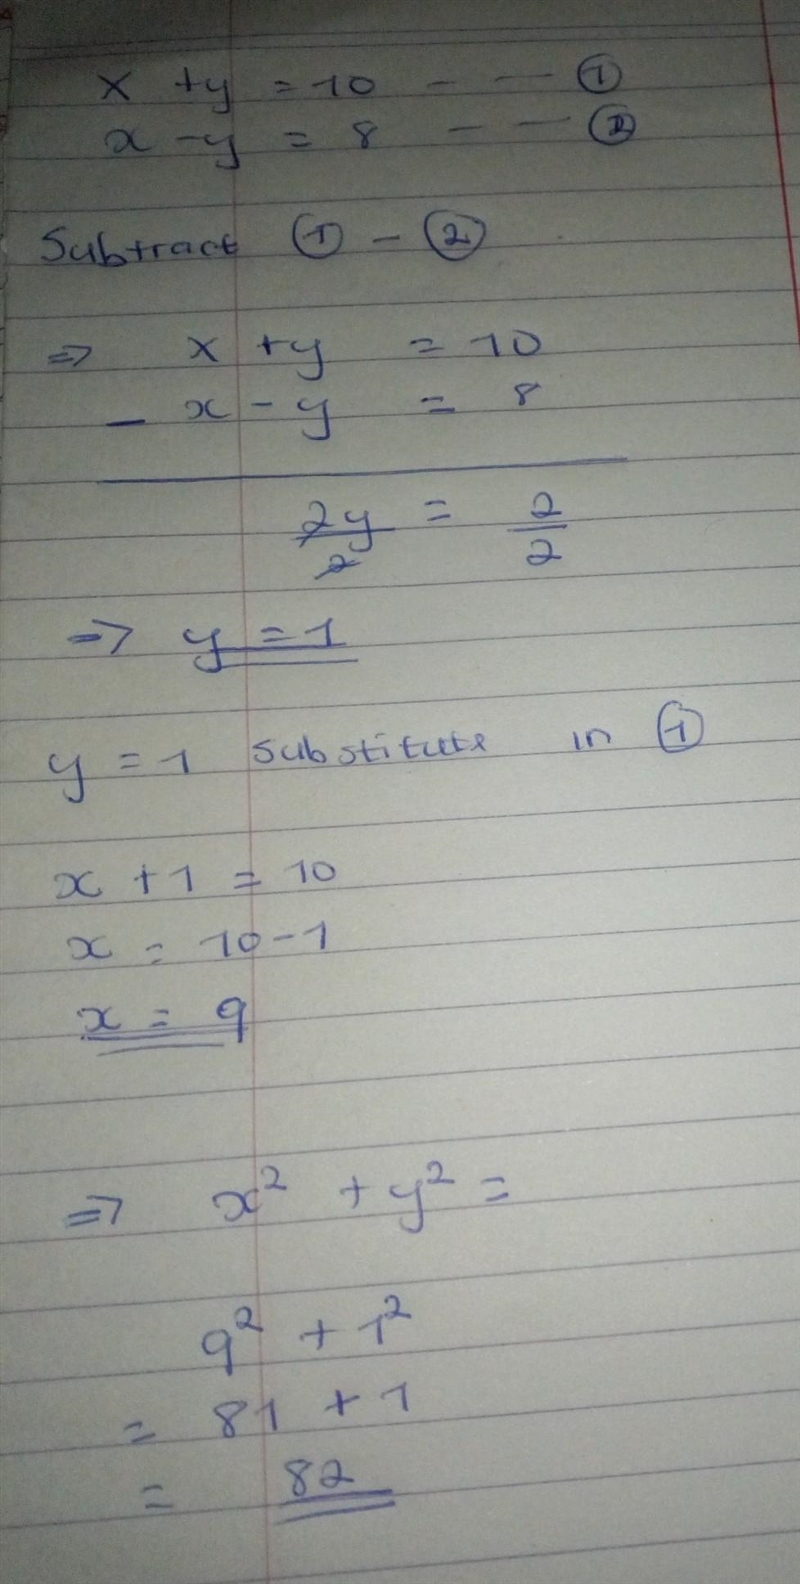 x + y = 10 - - — ①
x - y = 8 - - — ②
Subtract ① - ②
=> x + y = 10
- x - y = 8
2y/2 = 2/2
=> y = 1
y = 1 substitute in ①
x + 1 = 10
x = 10 - 1
x = 9
=> x² + y² =
9² + 1²
= 81 + 1
= 82